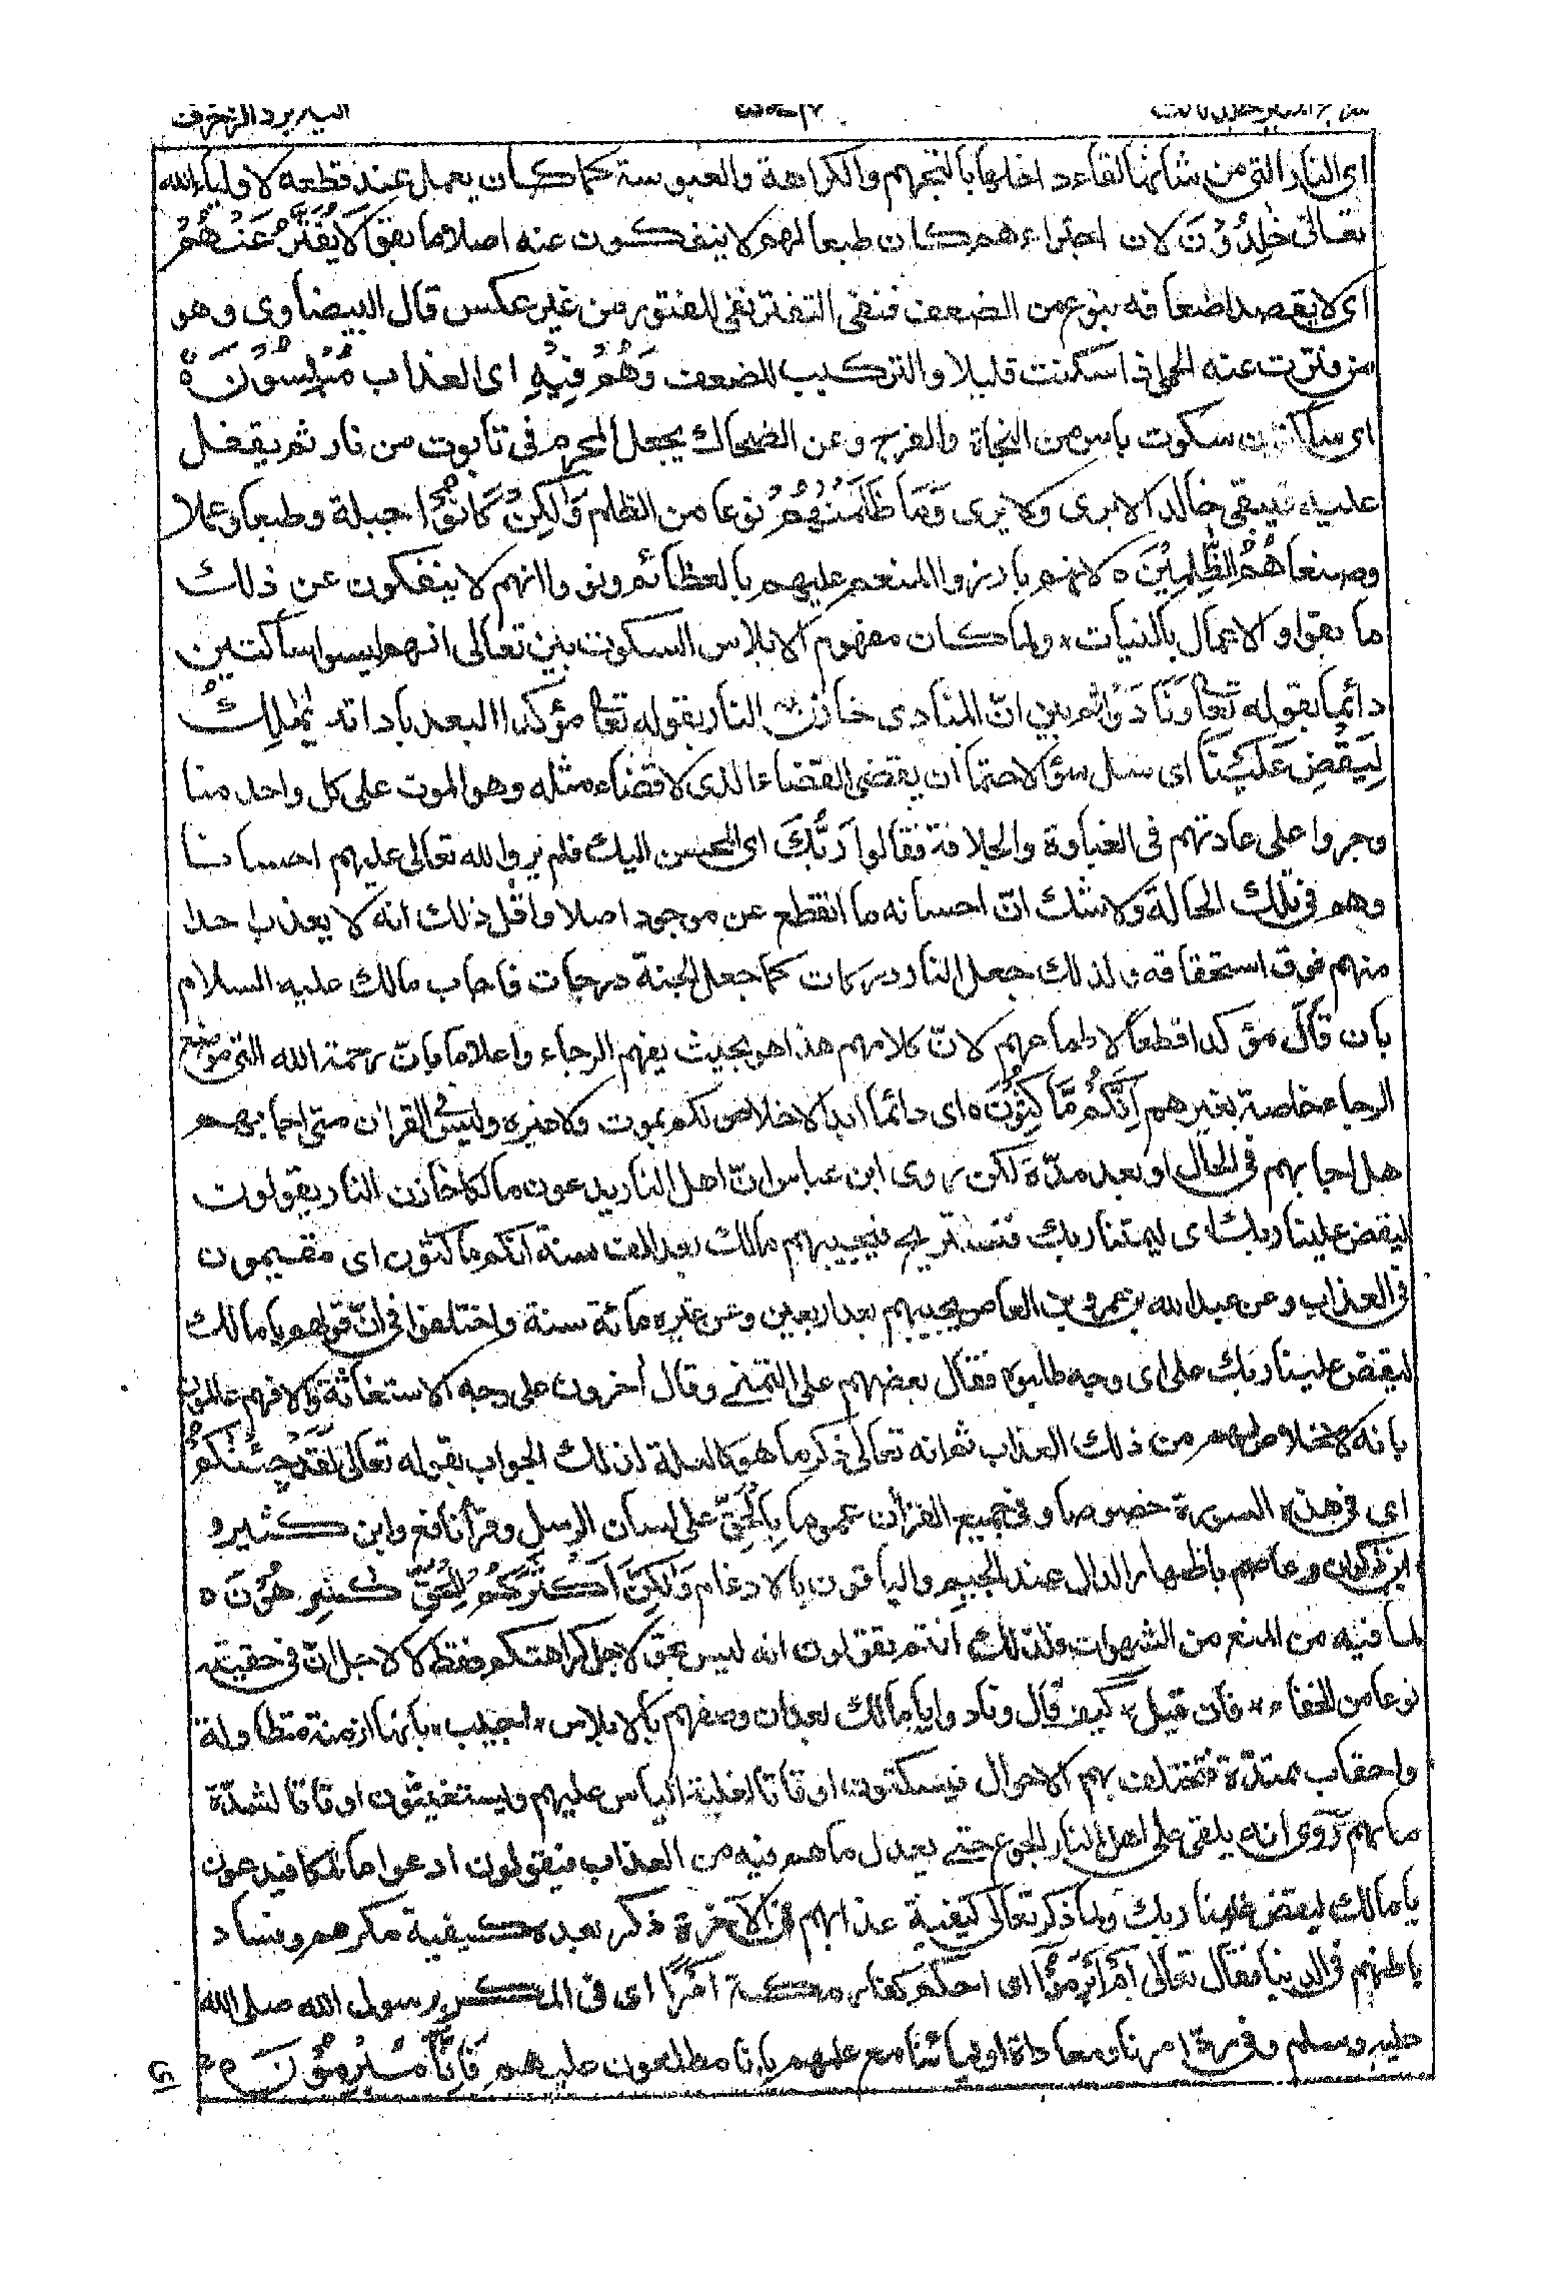 اليه يرد الزخرف
اى النار التى من شانها لقاء داخلها بالتجهم والكراهة والعبوسة كما كان يعمل عند قطعه لاولياء الله
تعالى خٰلِدُوْنَ لان اجتراءهم كان طبعا لهم لا ينفكون عنه اصلا ما بقوا لَا يُفَتَّرُ عَنْهُمْ
اى لا يقصد اضعافه بنوع من الضعف فنفى التفتر نفى للفتور من غير عكس قال البيضاوى وهو
من فترت عنه الحمى اذا سكنت قليلا والتركيب للضعف وَهُمْ فِيْهِ اى العذاب مُبْلِسُوْنَ ه
اى ساكتون سكوت ياس من النجاة والفرج وعن الضحاك يجعل المجرم فى تابوت من نار ثم يقفل
عليه فيبقى خالدا لا يرى ولا يرى وَمَا ظَلَمْنٰهُمْ نوعا من الظلم وَلٰكِنْ كَانُوْا جبلة وطبعا وعملا
وصنعا هُمُ الظّٰلِمِيْنَ ه لانهم بارزوا المنعم عليهم بالعظائم ونووا انهم لا ينفكون عن ذلك
ما بقوا والاعمال بالنيات، ولما كان مفهوم الابلاس السكوت بين تعالى انهم ليسوا ساكتين
دائما بقوله تعالٰى وَنَادَوْا ثم بين انّ المنادى خازن النار بقوله تعالٰى مؤكدا البعد باداته يٰمٰلِكُ
لِيَقْضِ عَلَيْنَا اى سل سؤالا حتما ان يقضى القضاء الذى لا قضاء مثله وهو الموت على كل واحد منا
وجروا على عادتهم فى الغباوة والجلافة فقالوا رَبُّكَ اى المحسن اليك فلم يروا لله تعالى عليهم احسانا
وهم فى تلك الحالة ولا شك انّ احسانه ما انقطع عن موجود اصلا واقل ذلك انه لا يعذب احدا
منهم فوق استحقاقه ولذلك جعل النار دركات كما جعل الجنة درجات فاجاب مالك عليه السلام
بان قَالَ مؤكدا قطعا لاطماعهم لانّ كلامهم هذا هو بحيث يفهم الرجاء واعلاما بانّ رحمة الله التى موضع
الرجاء خاصة بغيرهم اِنَّكُمْ مَّاكِثُوْنَ ه اى دائما ابدا لا خلاص لكم بموت ولا غيره وليس فى القراٰن متى اجابهم
هل اجابهم فى الحال او بعد مدّة لكن روى ابن عباس انّ اهل النار يدعون مالكا خازن النار يقولون
ليقض علينا ربك اى ليمتنا ربك فنستريح فيجيبهم مالك بعد الف سنة انكم ماكثون اى مقيمون
فى العذاب وعن عبد الله بن عمرو بن العاص يجيبهم بعد اربعين وعن غيره مائة سنة واختلفوا فى انّ قولهم يا مالك
ليقض علينا ربك على اى وجه طلبوه فقال بعضهم على التمنى وقال اٰخرون على وجه الاستغاثة والا فهم عالمون
بانه لا خلاص لهم من ذلك العذاب ثم انه تعالى ذكر ما هو كالعلة لذلك الجواب بقوله تعالى لَقَدْ جِئْنٰكُمْ
اى فى هذه السورة خصوصا وفى جميع القراٰن عموما بِالْحَقِّ على لسان الرسل وقرأ نافع وابن كثير و
ابن ذكوان وعاصم باظهار الدال عند الجيم والباقون بالادغام وَلٰكِنَّ اَكْثَرَكُمْ لِلْحَقِّ كٰرِهُوْنَ ه
لما فيه من المنع من الشهوات ولذلك انتم تقولون انه ليس بحق لاجل كراهتكم فقط لا لاجل انّ فى حقيته
نوعا من الخفاء، فان قيل، كيف قال ونادوا يا مالك بعد ان وصفهم بالابلاس، اجيب، بانها ازمنة متطاولة
واحقاب ممتدّة فتختلف بهم الاحوال فيسكتون اوقاتا لغلبة الياس عليهم ويستغيثون اوقاتا لشدّة
ما بهم رُوى انه يلقى على اهل النار الجوع حتى يعدل ما هم فيه من العذاب فيقولون ادعوا مالكا فيدعون
يا مالك ليقض علينا ربك ولما ذكر تعالى كيفية عذابهم فى الاٰخرة ذكر بعده كيفية مكرهم وفساد
باطنهم فى الدنيا فقال تعالى اَمْ اَبْرَمُوْۤا اى احكم كفار مكة اَمْرًا اى فى المكر برسول الله صلى الله
عليه وسلم وفى ردّ امرنا ومعاداة اوليائنا مع علمهم بانا مطلعون عليهم فَاِنَّا مُبْرِمُوْنَ ه